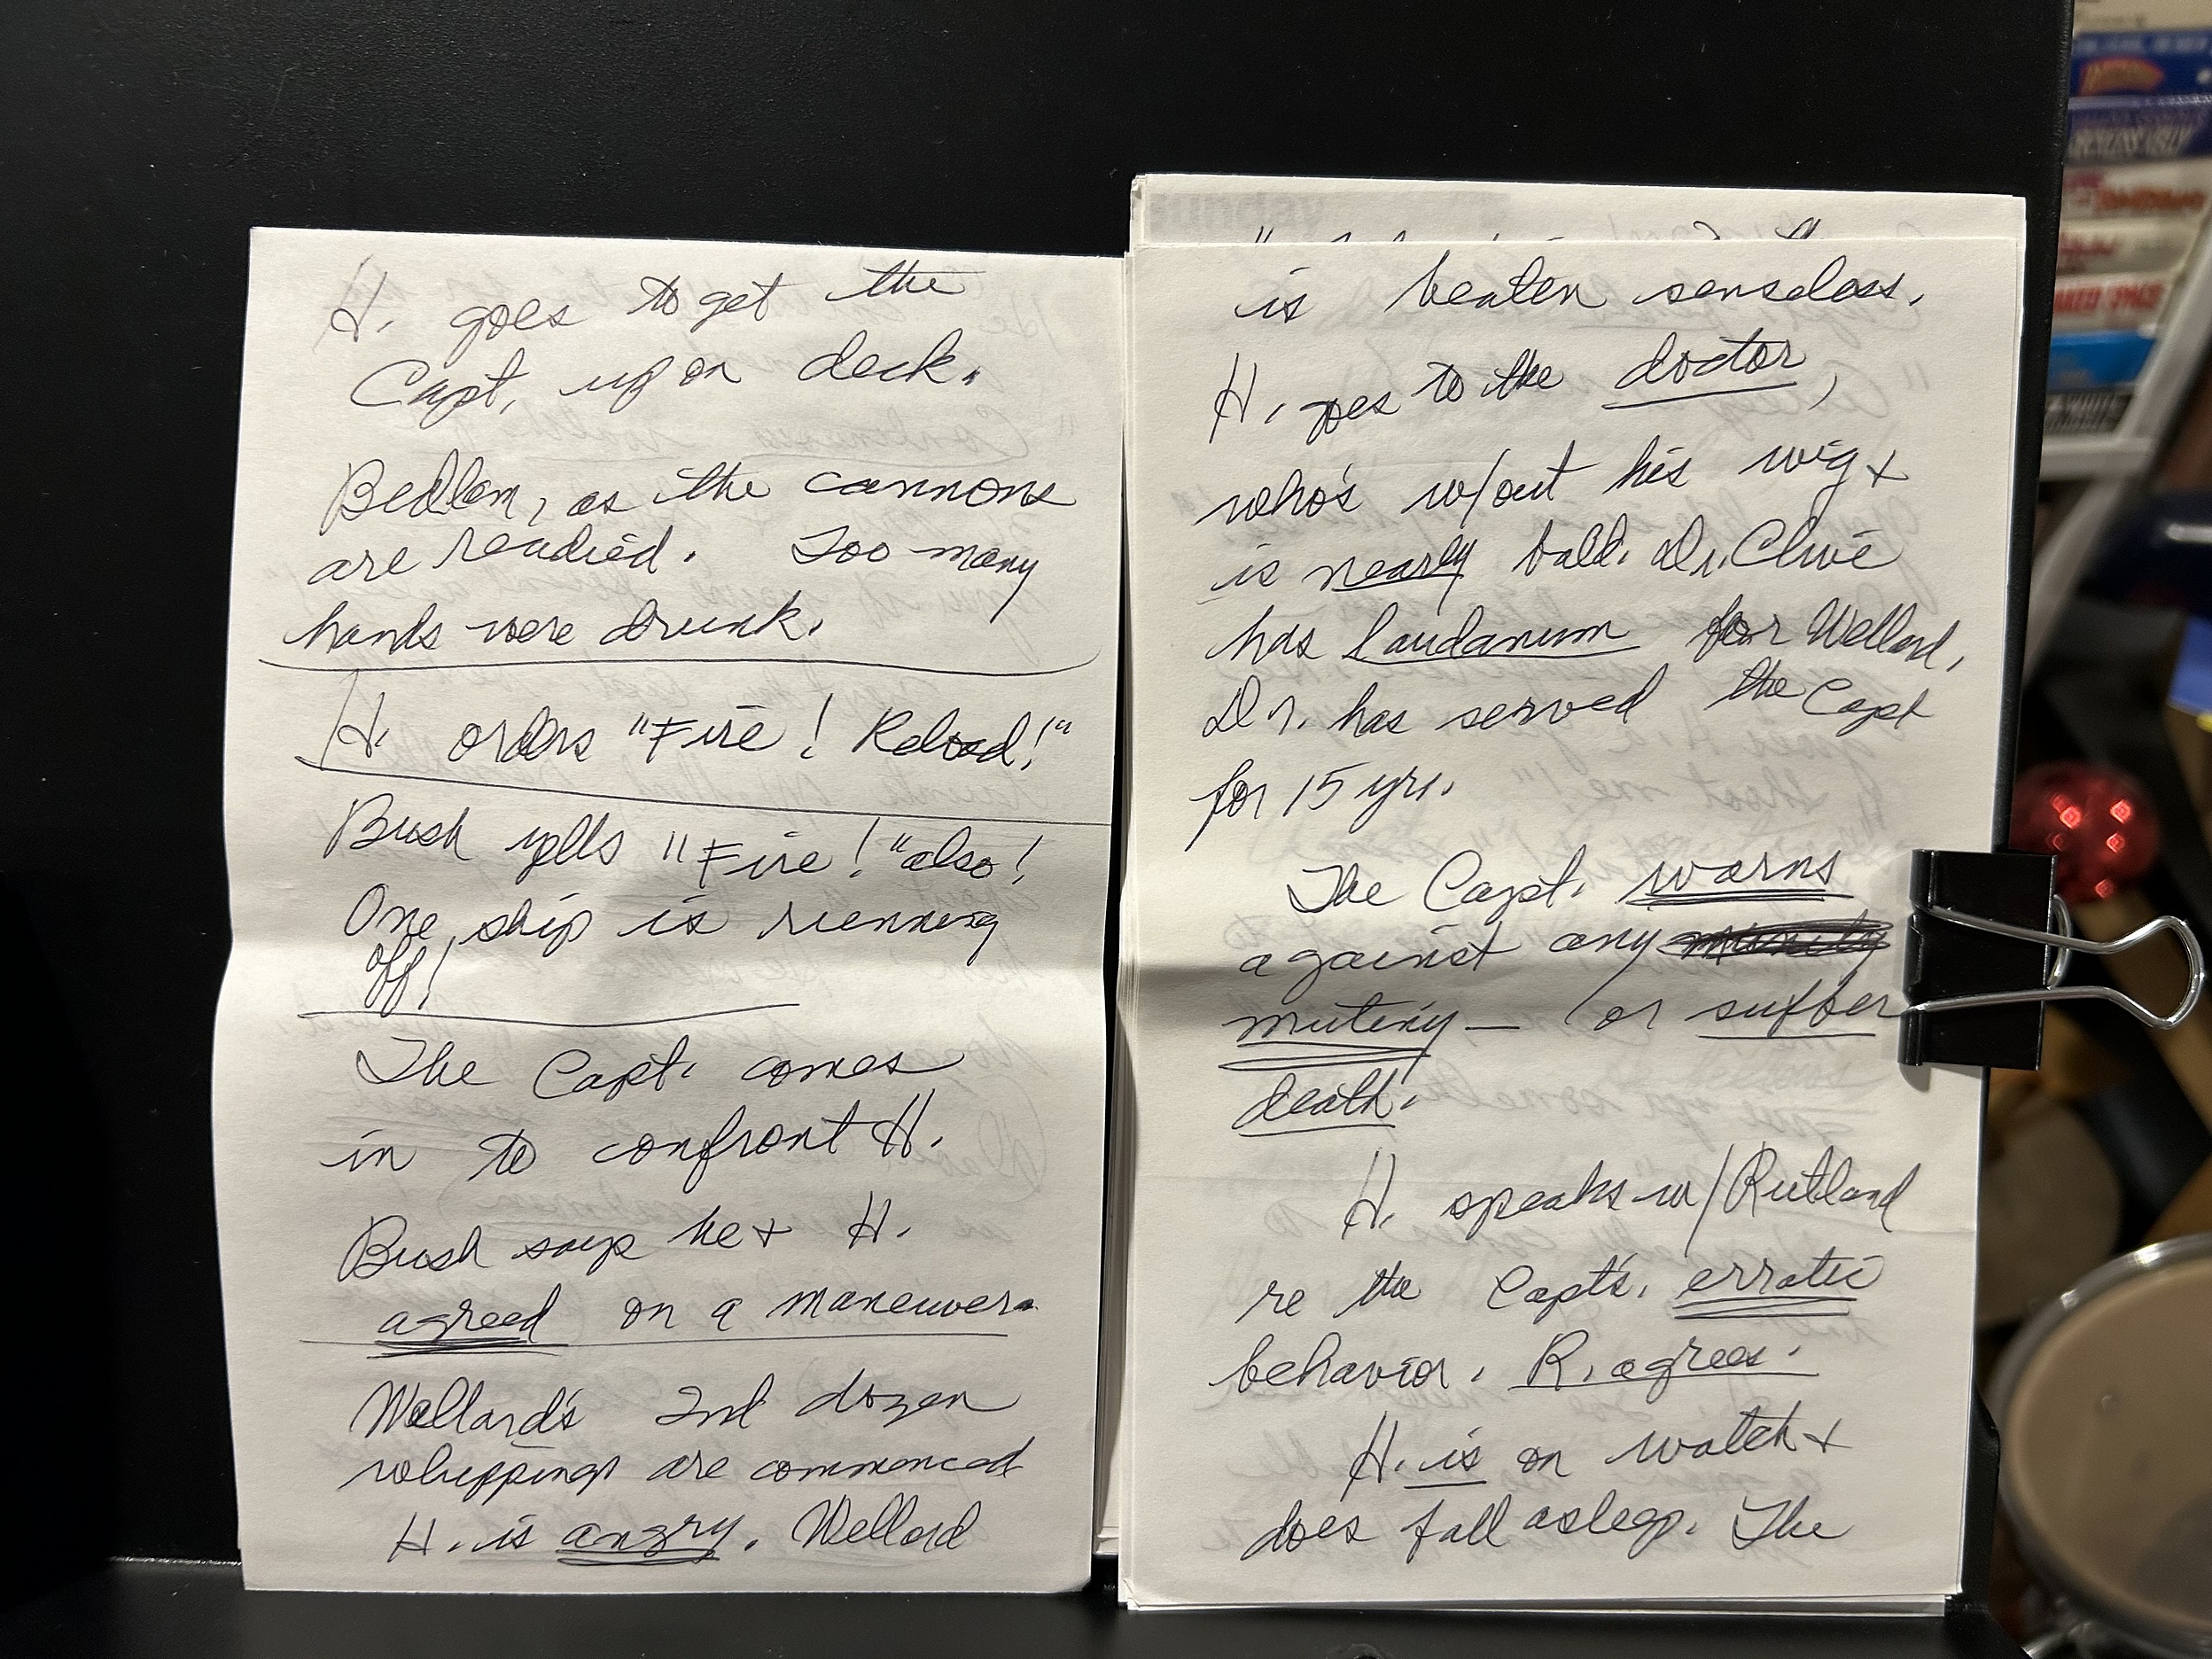 H. goes to get the
Capt, up on deck.
Bedlam, as the cannons
are readied. Too many
hands were drunk.
H. orders "Fire! Reload!"
Bush yells "Fire!" also!
One ship is running
off!
The Capt. comes
in to confront H.
Bush says he + H.
agreed on a maneuver.
Wellard's 2nd dozen
whippings are commenced
H. is angry. Wellard
is beaten senseless.
H. goes to the doctor,
who's w/out his wig +
is nearly bald. Dr. Clive
has laudanum for Wellard.
Dr. has served the Capt
for 15 yrs.
The Capt. warns
against any
mutiny — or suffer
death.
H. speaks w/Rutland
re the Capt's. erratic
behavior. R. agrees.
H. is on watch +
does fall asleep. The